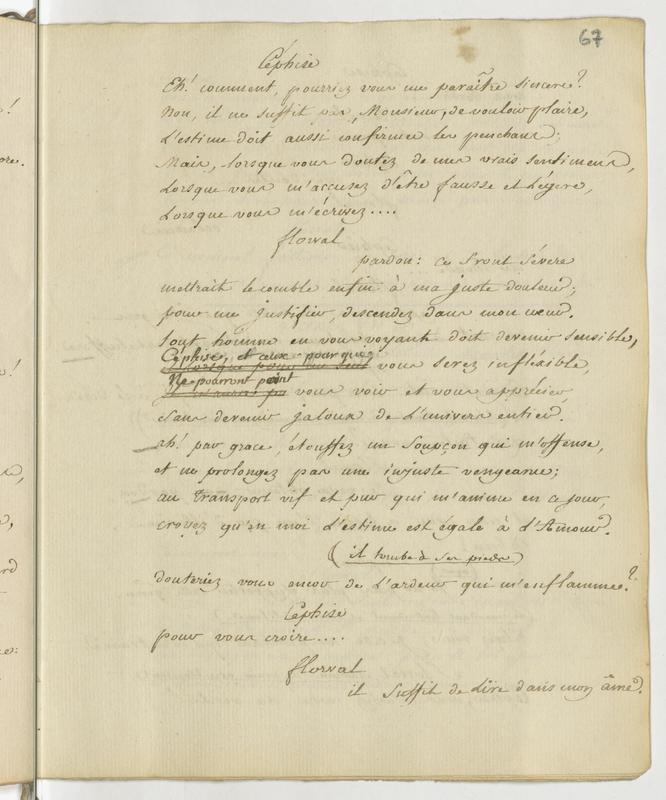 67
Céphise
Eh! comment, pourriez vous me paraître sincere?
Non, il ne suffit pas, Monsieur, de vouloir plaire,
L'estime doit aussi confirmer les penchans;
Mais, lorsque vous doutez de mes vrais sentimens,
Lorsque vous m'accusez d'être fausse et Légere,
Lorsque vous m'écrivez....
florval
pardon: ce front sévere
mettrait le comble enfin à ma juste douleur;
pour me justifier, descendez dans mon cœur.
tout homme en vous voyant doit devenir sensible,
Céphise, et ceux pour qui
vous serez infléxible,
Ne pourront point
vous voir et vous apprécier,
Sans devenir jaloux de L'univers entier.
ah! par grace, étouffez un soupçon qui m'offense,
et ne prolongez pas une injuste vengeance;
au transport vif et pur qui m'anime en ce jour,
croyez qu'en moi L'estime est égale à L'Amour.
(il tombe à ses pieds)
douteriez vous encor de L'ardeur qui m'enflamme?
Céphise
pour vous croire....
florval
il suffit de Lire dans mon âme.